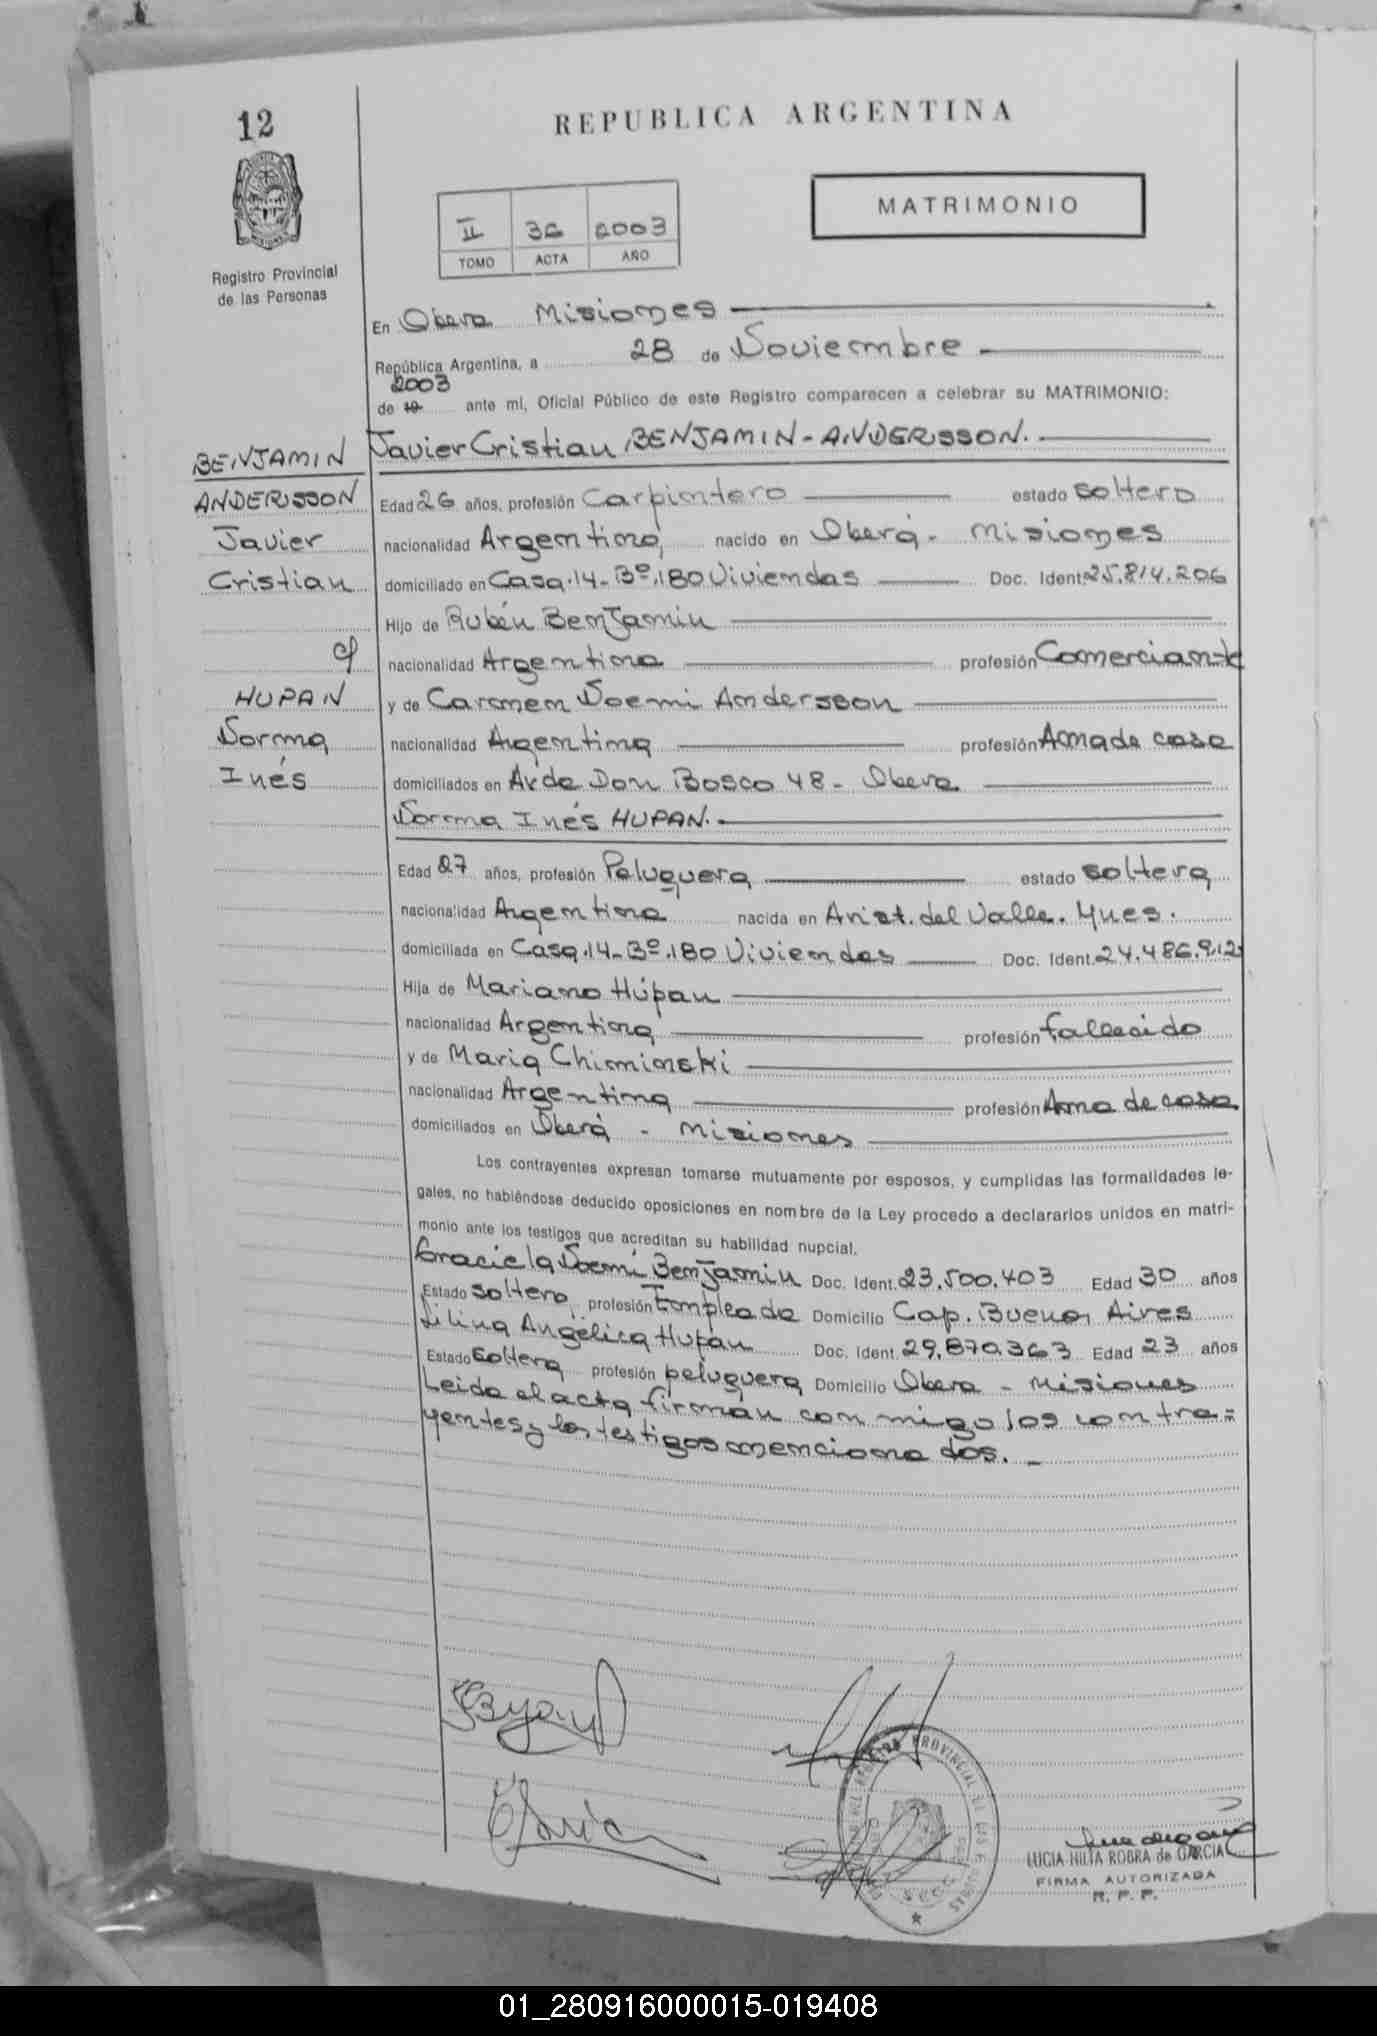 12
REPUBLICA ARGENTINA
MATRIMONIO
II 36 2003
TOMO ACTA AÑO
Registro Provincial
de las Personas
En Obera Misiones
República Argentina, a 28 de Noviembre
2003
de 19 ante mí, Oficial Público de este Registro comparecen a celebrar su MATRIMONIO:
Javier Cristian BENJAMIN-ANDERSSON.
BENJAMIN
ANDERSSON
Javier
Cristian
c/
HUPAN
Norma
Inés
Edad 26 años, profesión Carpintero estado soltero
nacionalidad Argentina nacido en Oberá - Misiones
domiciliado en Casa.14-Bº.180 Viviendas Doc. Ident. 25.814.206
Hijo de Rubén Benjamin
nacionalidad Argentina profesión Comerciante
y de Carmen Noemi Andersson
nacionalidad Argentina profesión Ama de casa
domiciliados en Avda Don Bosco 48 - Obera
Norma Inés HUPAN.
Edad 27 años, profesión Peluquera estado soltera
nacionalidad Argentina nacida en Arist. del Valle.
domiciliada en Casa.14-Bº.180 Viviendas Doc. Ident. 24.486.912
Hija de Mariano Húpan
nacionalidad Argentina profesión fallecido
y de Maria Chiminski
nacionalidad Argentina profesión Ama de casa
domiciliados en Oberá - Misiones
Los contrayentes expresan tomarse mutuamente por esposos, y cumplidas las formalidades le-
gales, no habiéndose deducido oposiciones en nombre de la Ley procedo a declararlos unidos en matri-
monio ante los testigos que acreditan su habilidad nupcial.
Graciela Noemí Benjamin Doc. Ident. 23.500.403 Edad 30 años
Estado soltera profesión Empleada Domicilio Cap. Buenos Aires
Lilina Angélica Hupan Doc. Ident. 29.870.363 Edad 23 años
Estado soltera profesión peluquera Domicilio Obera - Misiones
Leida el acta firman con migo los contra=
yentes y los testigos mencionados. -
LUCIA HILDA ROBRA de GARCIA
FIRMA AUTORIZADA
R. P. P.
01_280916000015-019408